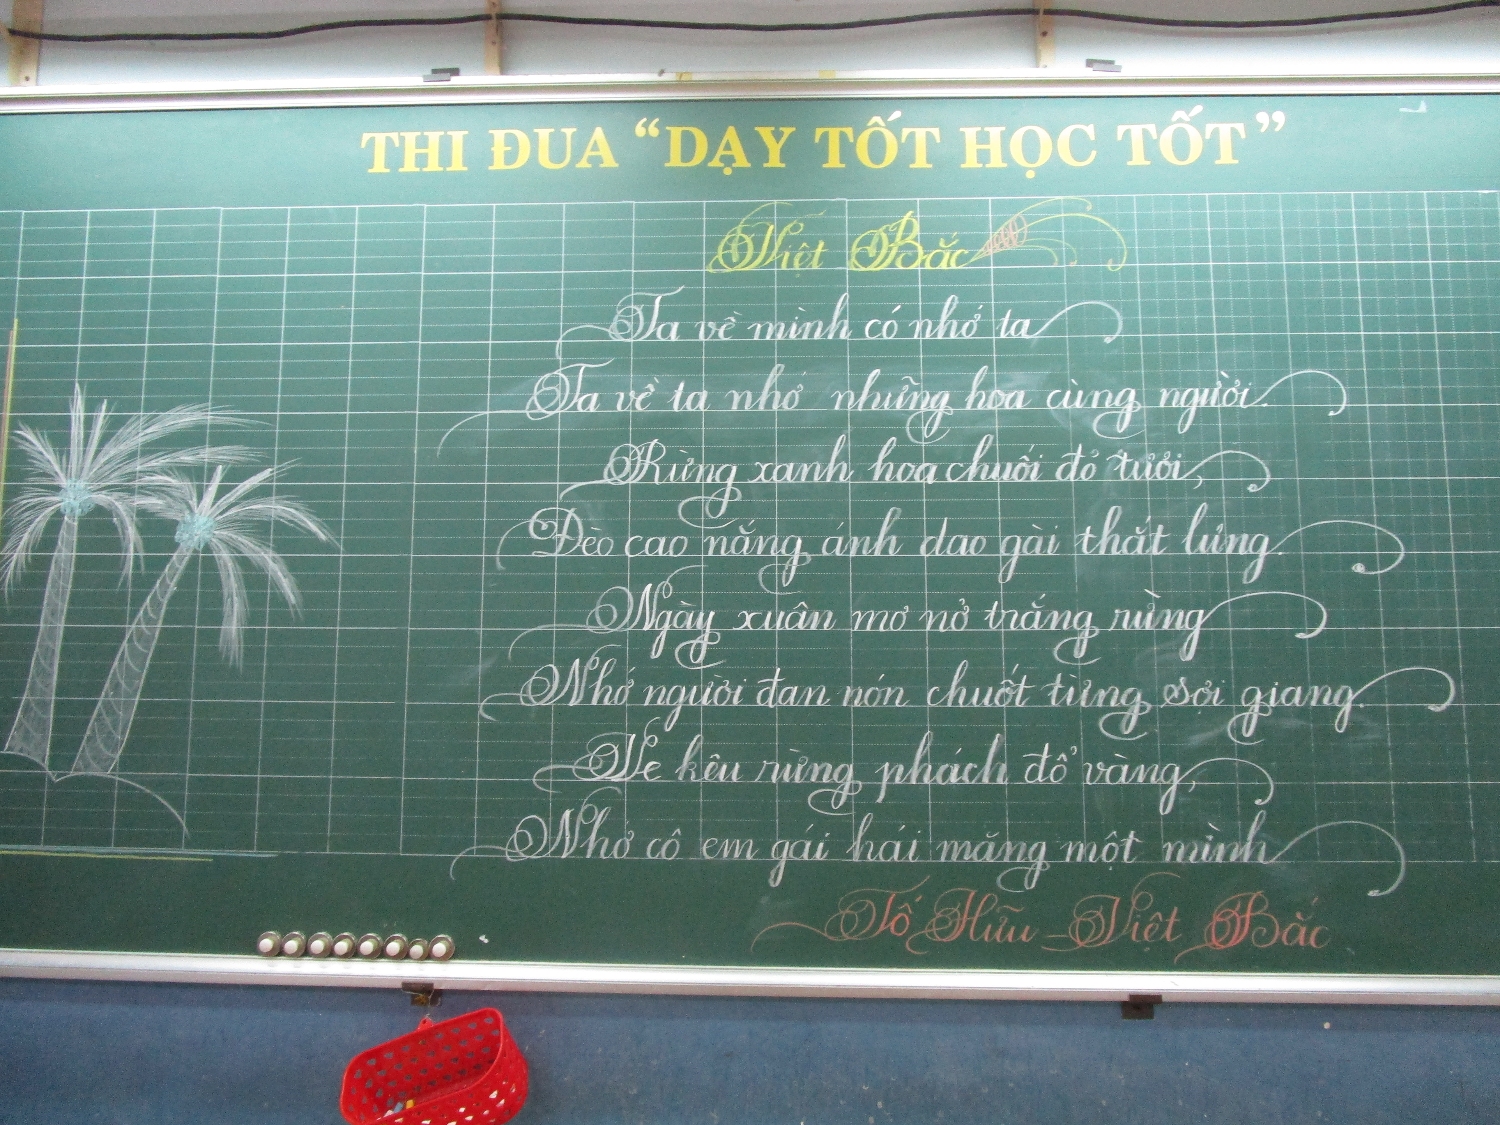 THI ĐUA “DẠY TỐT HỌC TỐT”
Việt Bắc
Ta về mình có nhớ ta
Ta về ta nhớ những hoa cùng người.
Rừng xanh hoa chuối đỏ tươi,
Đèo cao nắng ánh dao gài thắt lưng.
Ngày xuân mơ nở trắng rừng
Nhớ người đan nón chuốt từng sợi giang.
Ve kêu rừng phách đổ vàng,
Nhớ cô em gái hái măng một mình
Tố Hữu _ Việt Bắc